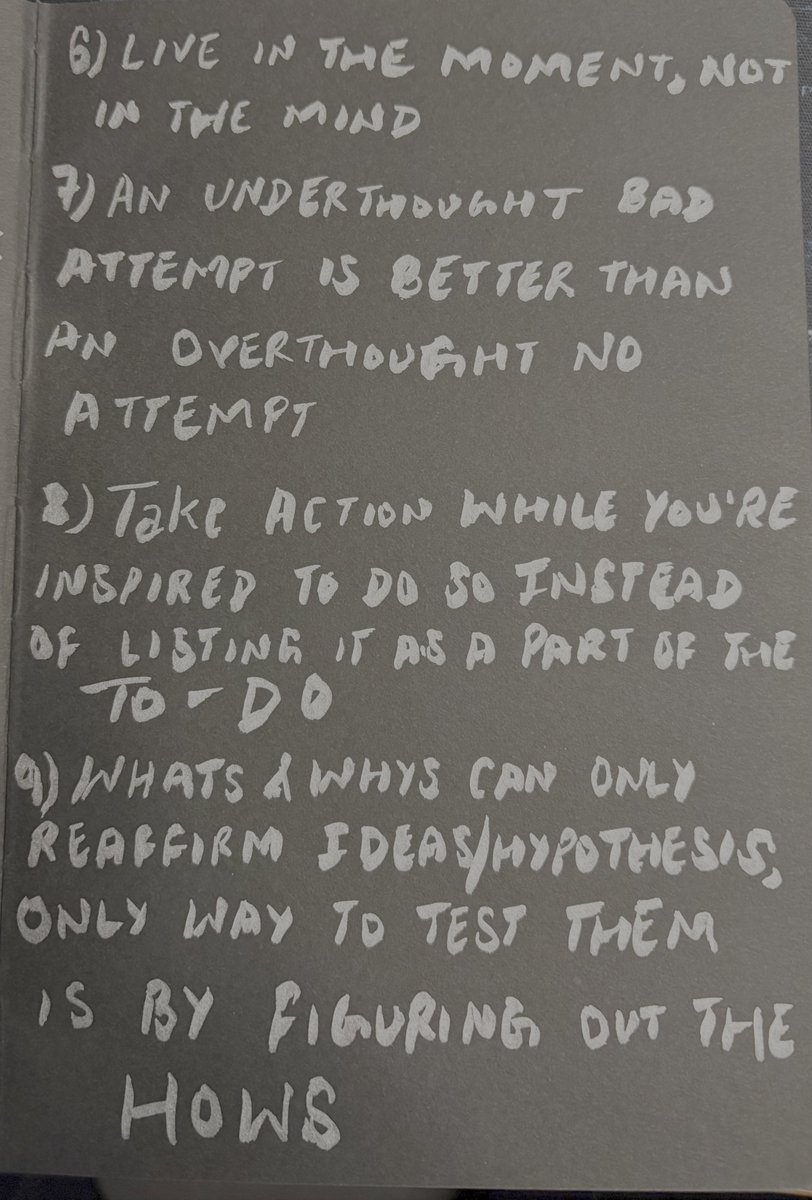 6) LIVE IN THE MOMENT, NOT
IN THE MIND
7) AN UNDERTHOUGHT BAD
ATTEMPT IS BETTER THAN
AN OVERTHOUGHT NO
ATTEMPT
8) Take ACTION WHILE YOU'RE
INSPIRED TO DO SO INSTEAD
OF LISTING IT AS A PART OF THE
TO-DO
9) WHATS & WHYS CAN ONLY
REAFFIRM IDEAS/HYPOTHESIS,
ONLY WAY TO TEST THEM
IS BY FIGURING OUT THE
HOWS